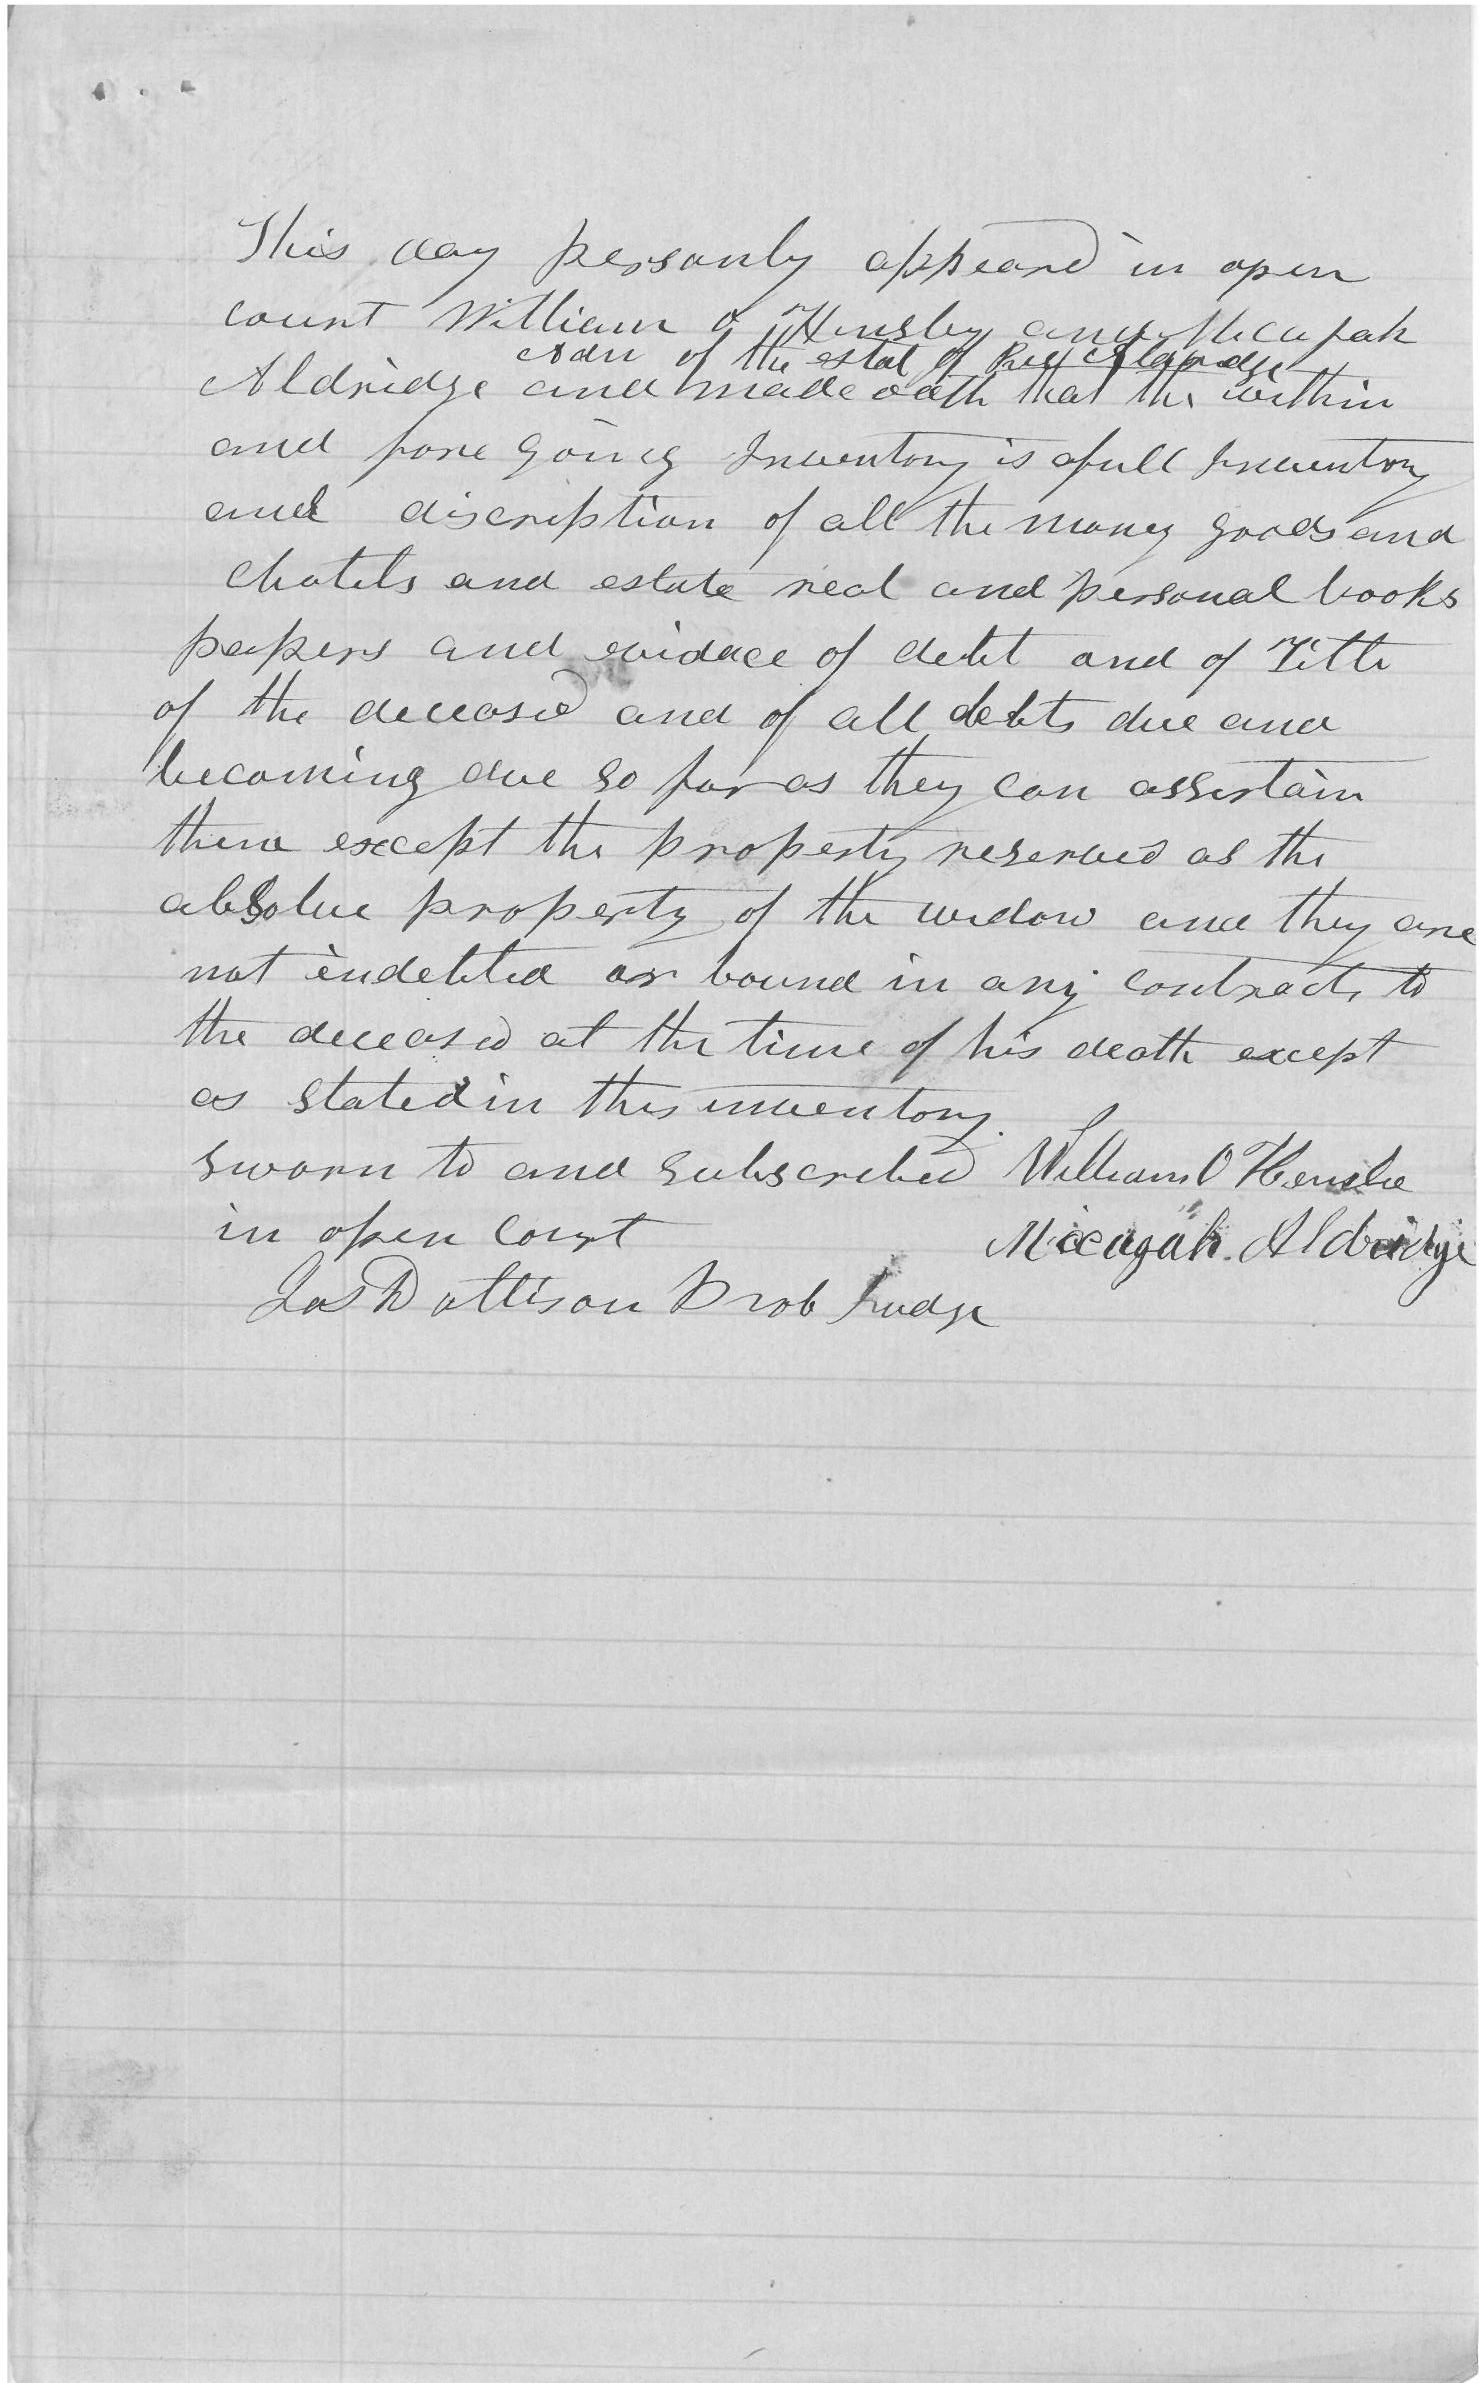 This day personly appeard in open
court William O Hensley and Micajah
Adm of the estat of
Aldridge and made oath that the within
and fore going Inventory is a full Inventory
and discription of all the money goods and
Chatels and estate real and personal books
papers and evidace of debt and of Title
of the deceased and of all debts due and
becoming due so far as they can assertain
them except the property reserved as the
absolue property of the widow and they are
not indebted or bound in any contract to
the deceased at the time of his death except
as stated in this inventory.
sworn to and subscribed William O Henslie
in open Court Micagah. Aldridge
Jas Pattison Prob Judge